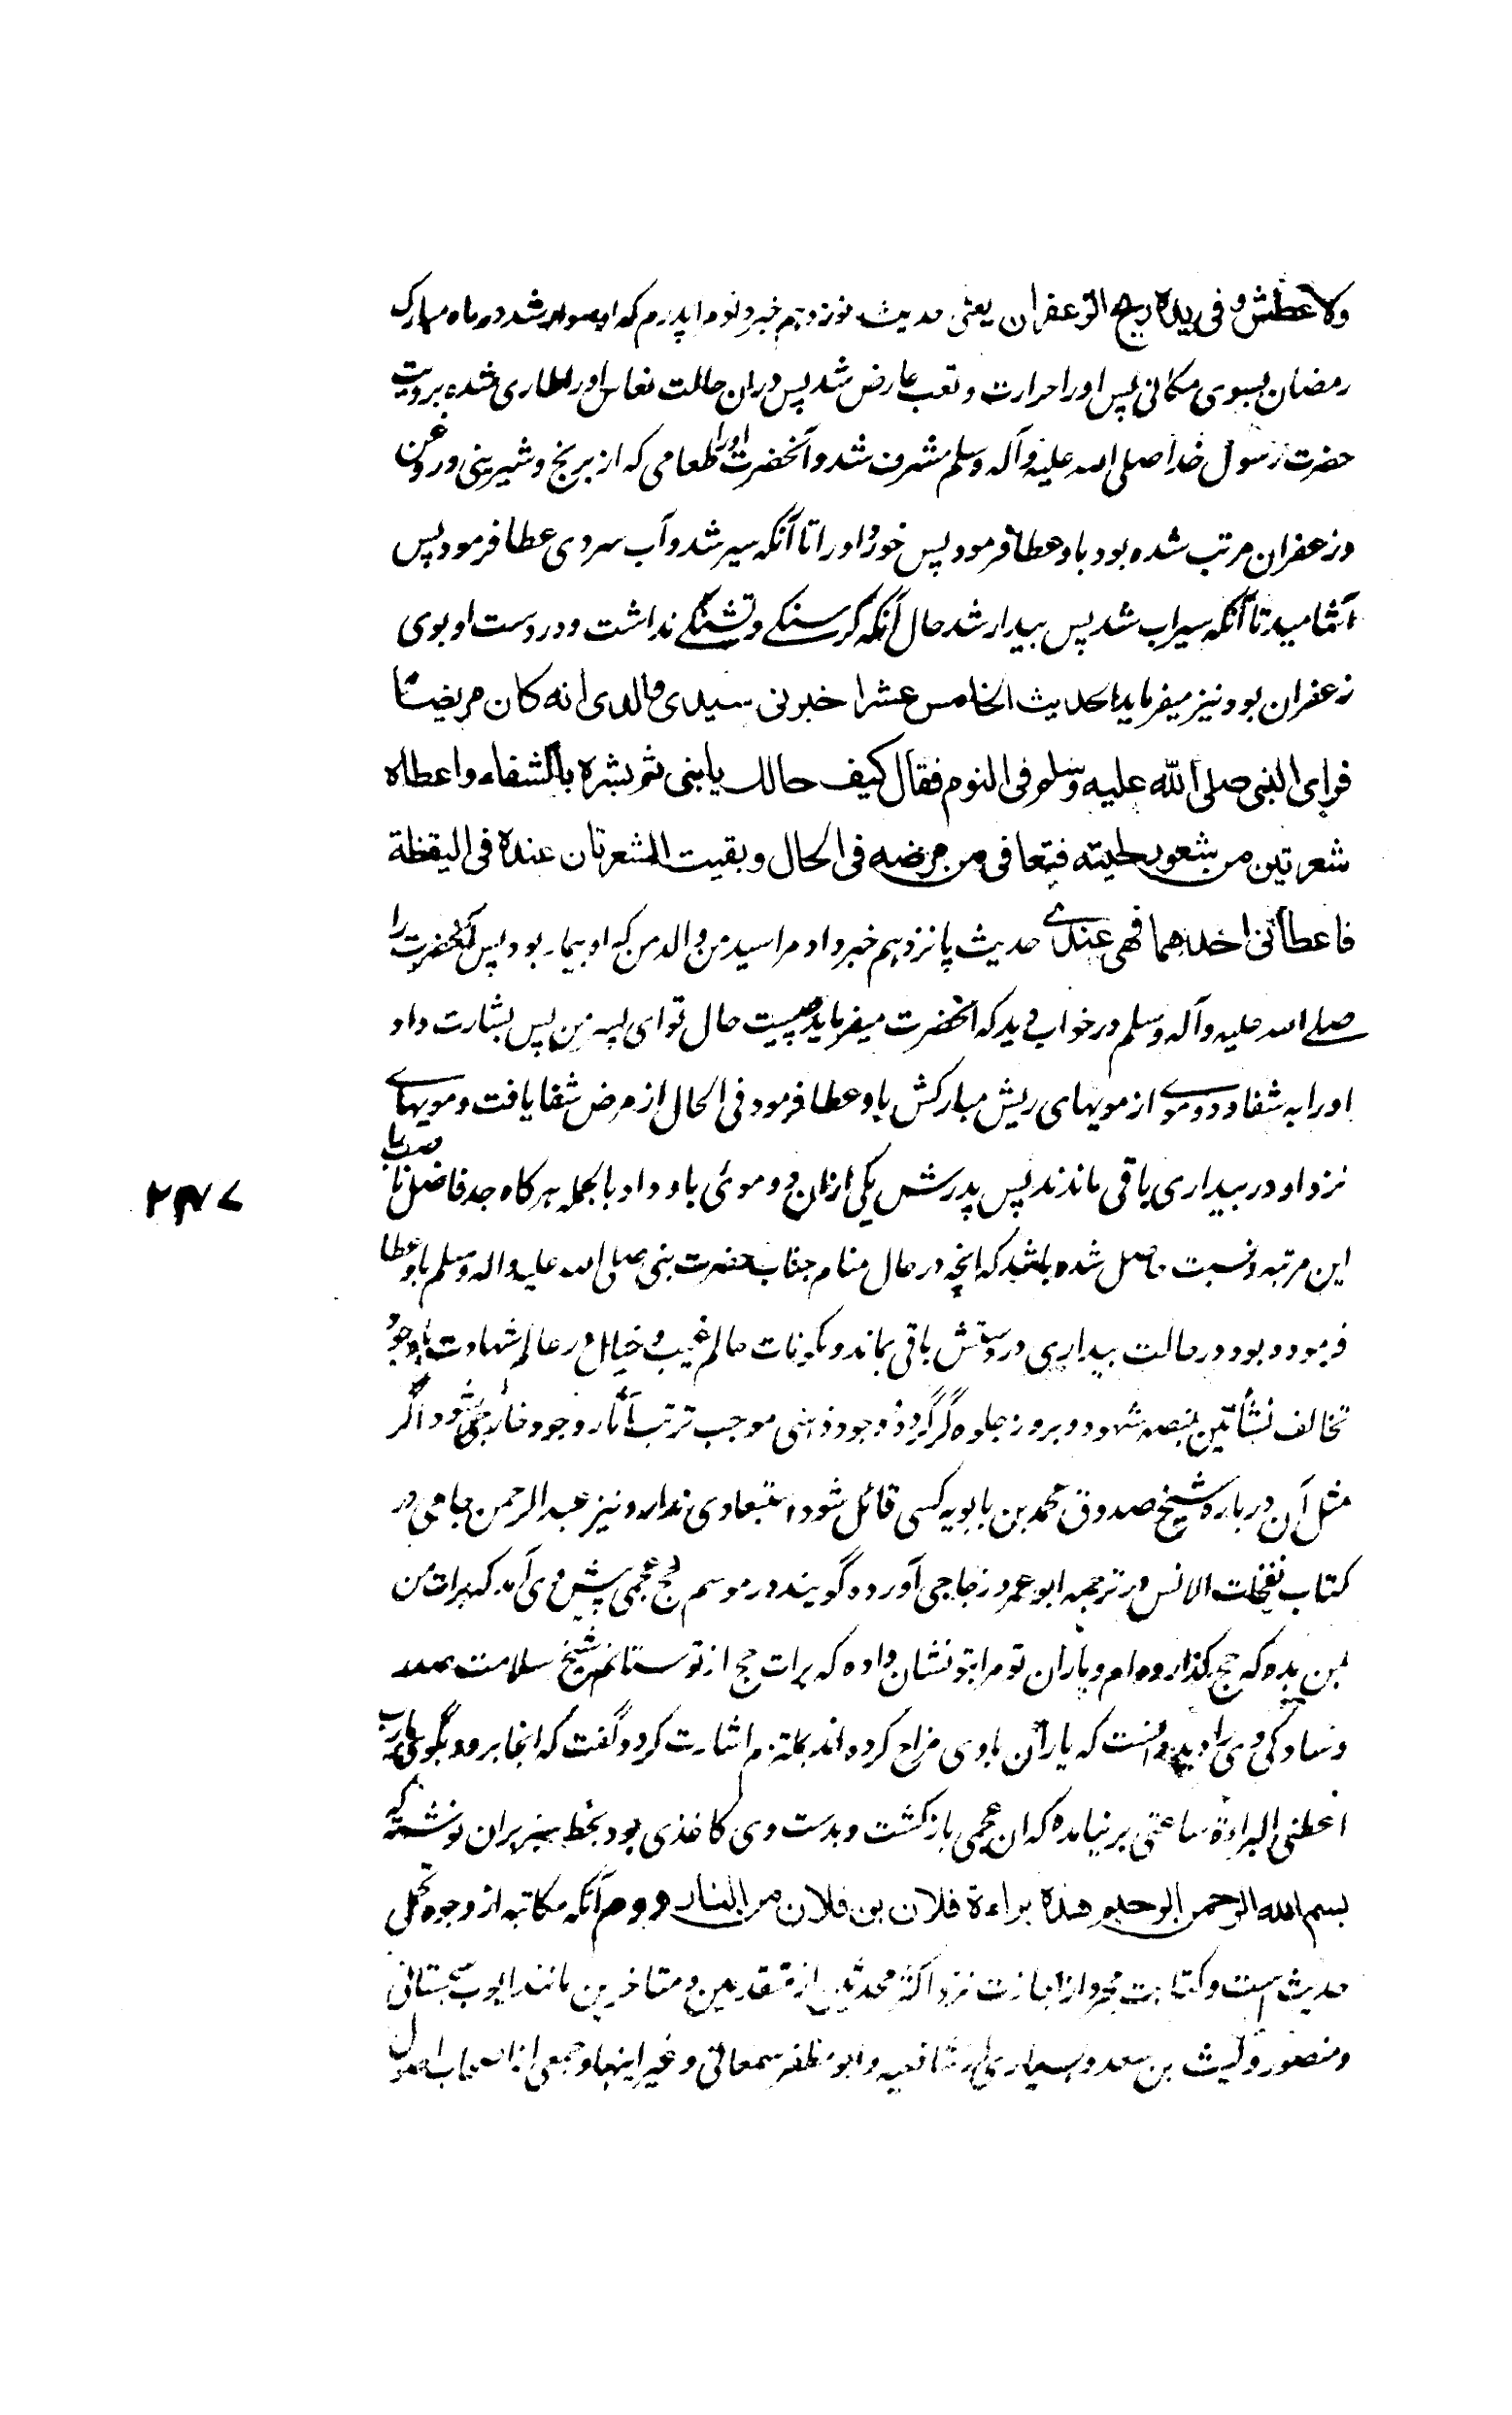 ولا عطش وفی یده ریح الزعفران یعنی حدیث نوزدهم خبر داد مرا پدرم که او سوار شد در ماه مبارک
رمضان بسوی مکانی پس او را حرارت و تعب عارض شد پس دران حالت نعاس او را طاری شده برویت
حضرت رسول خدا صلی الله علیه وآله وسلم مشرف شد وآنحضرت او را طعامی که از برنج وشیرینی وروغن
وزعفران مرتب شده بود باو عطا فرمود پس خورد او را تا آنکه سیر شد وآب سردی عطا فرمود پس
آشامید تا آنکه سیراب شد پس بیدار شد حال آنکه گرسنگے وتشنگے نداشت ودر دست او بوی
زعفران بود ونیز میفرماید الحدیث الخامس عشر اخبرنی سیدی والدی انه کان مریضا
فرای النبی صلی الله علیه وسلم فی النوم فقال کیف حالک یا بنی ثم بشره بالشفاء واعطاه
شعرتین من شعور لحیته فتعافی من مرضه فی الحال وبقیت الشعرتان عنده فی الیقظة
فاعطانی احدهما فهی عندے حدیث پانزدهم خبر داد مرا سید من والد من که او بیمار بود پس آنحضرت را
صلے الله علیه وآله وسلم در خواب دید که آنحضرت میفرماید چیست حال تو ای پسر من پس بشارت داد
او را به شفا ودو موے از مویهای ریش مبارکش باو عطا فرمود فی الحال از مرض شفا یافت ومویهاے
نزد او در بیداری باقی ماندند پس پدرش یکی ازان دو موئی باو داد بالجمله هر گاه جد فاضل ناصب را
۲۴۷
این مرتبه ونسبت حاصل شده باشد که آنچه در حال منام جناب حضرت نبی صلی الله علیه واله وسلم باو عطا
فرموده بود در حالت بیداری در دستش باقی بماند ومکونات عالم غیب وخیال در عالم شهادت باوجود
تخالف نشأتین بمنصه شهود وبروز جلوه گر گردد ووجود ذهنی موجب ترتب آثار وجود خارجی شود اگر
مثل آن درباره شیخ صدوق محمد بن بابویه کسی قائل شود استبعادی ندارد ونیز عبد الرحمن جامی در
کتاب نفحات الانس در ترجمه ابو عمرو زجاجی آورده گویند در موسم حج عجمی پیش وی آمد که برات من
بمن بده که حج گذارده ام ویاران تو مرا بتو نشان داده که برات حج از تو ستانم شیخ سلامت صدر
وسادگی وی را دید دانست که یاران باوی مزاح کرده اند بملتزم اشارت کرد وگفت که آنجا برو وبگوی یا رب
اعطنی البراءة ساعتی برنیامده که ان عجمی بازگشت وبدست وی کاغذی بود بخط سبز بران نوشته که
بسم الله الرحمن الرحیم هذه براءة فلان بن فلان من النار دوم آنکه مکاتبه از وجوه تحمل
حدیث است وکتابت مجرد از اجازت نزد اکثر محدثین از متقدمین ومتاخرین مانند ایوب سجستانی
ومنصور ولیث بن سعد وبسیاری از شافعیه وابو مظفر سمعانی وغیر اینها وجمعی از اصحاب اصول